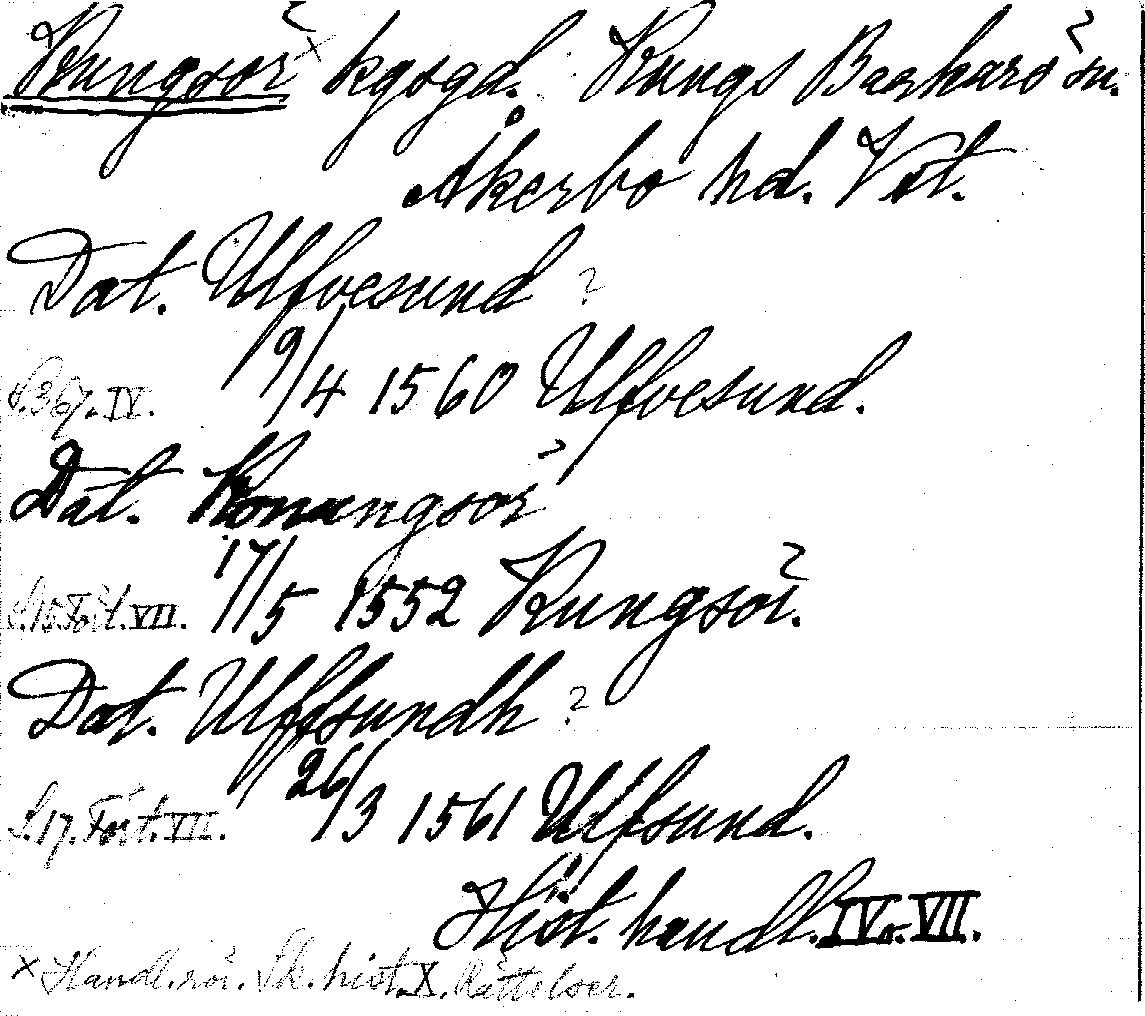 Kungsör× kgsgd. Kungs Barkarö sn.
Åkerbo hd. Vstl.
Dat. Ulfvesund ?
19/4 1560 Ulfvesund.
S. 367. IV.
Dat. Konungsör
17/5 1552 Kungsör.
S. 15. Fört. VII.
Dat. Ulffsundh ?
26/3 1561 Ulfsund.
S. 17. Fört. VII.
Hist. handl. IV o. VII.
× Handl. rör. Sk. hist. X. Rättelser.